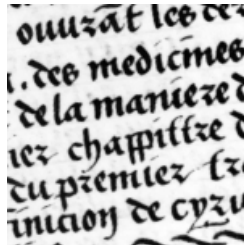 ouurāt les de
. des medicines
de la maniere d
ier chappittre d
du premier tra
inicion de cyru